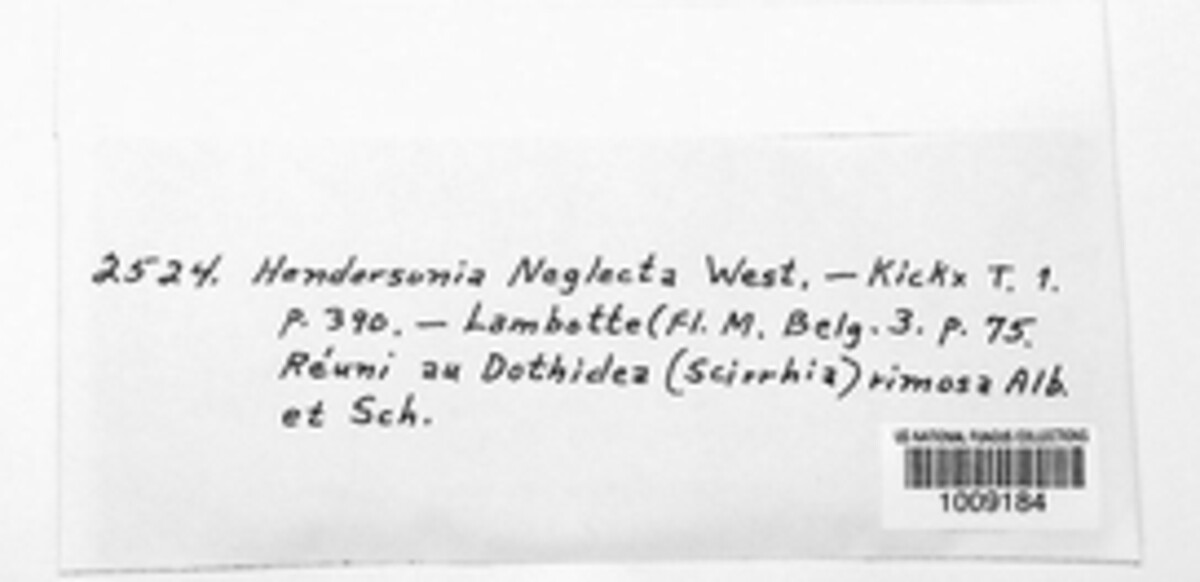 2524. Hendersonia Neglecta West. — Kickx T. 1.
p. 390. — Lambotte (Fl. M. Belg. 3. p. 75.
Réuni au Dothidea (Scirrhia) rimosa Alb.
et Sch.
US NATIONAL FUNGUS COLLECTIONS
1009184